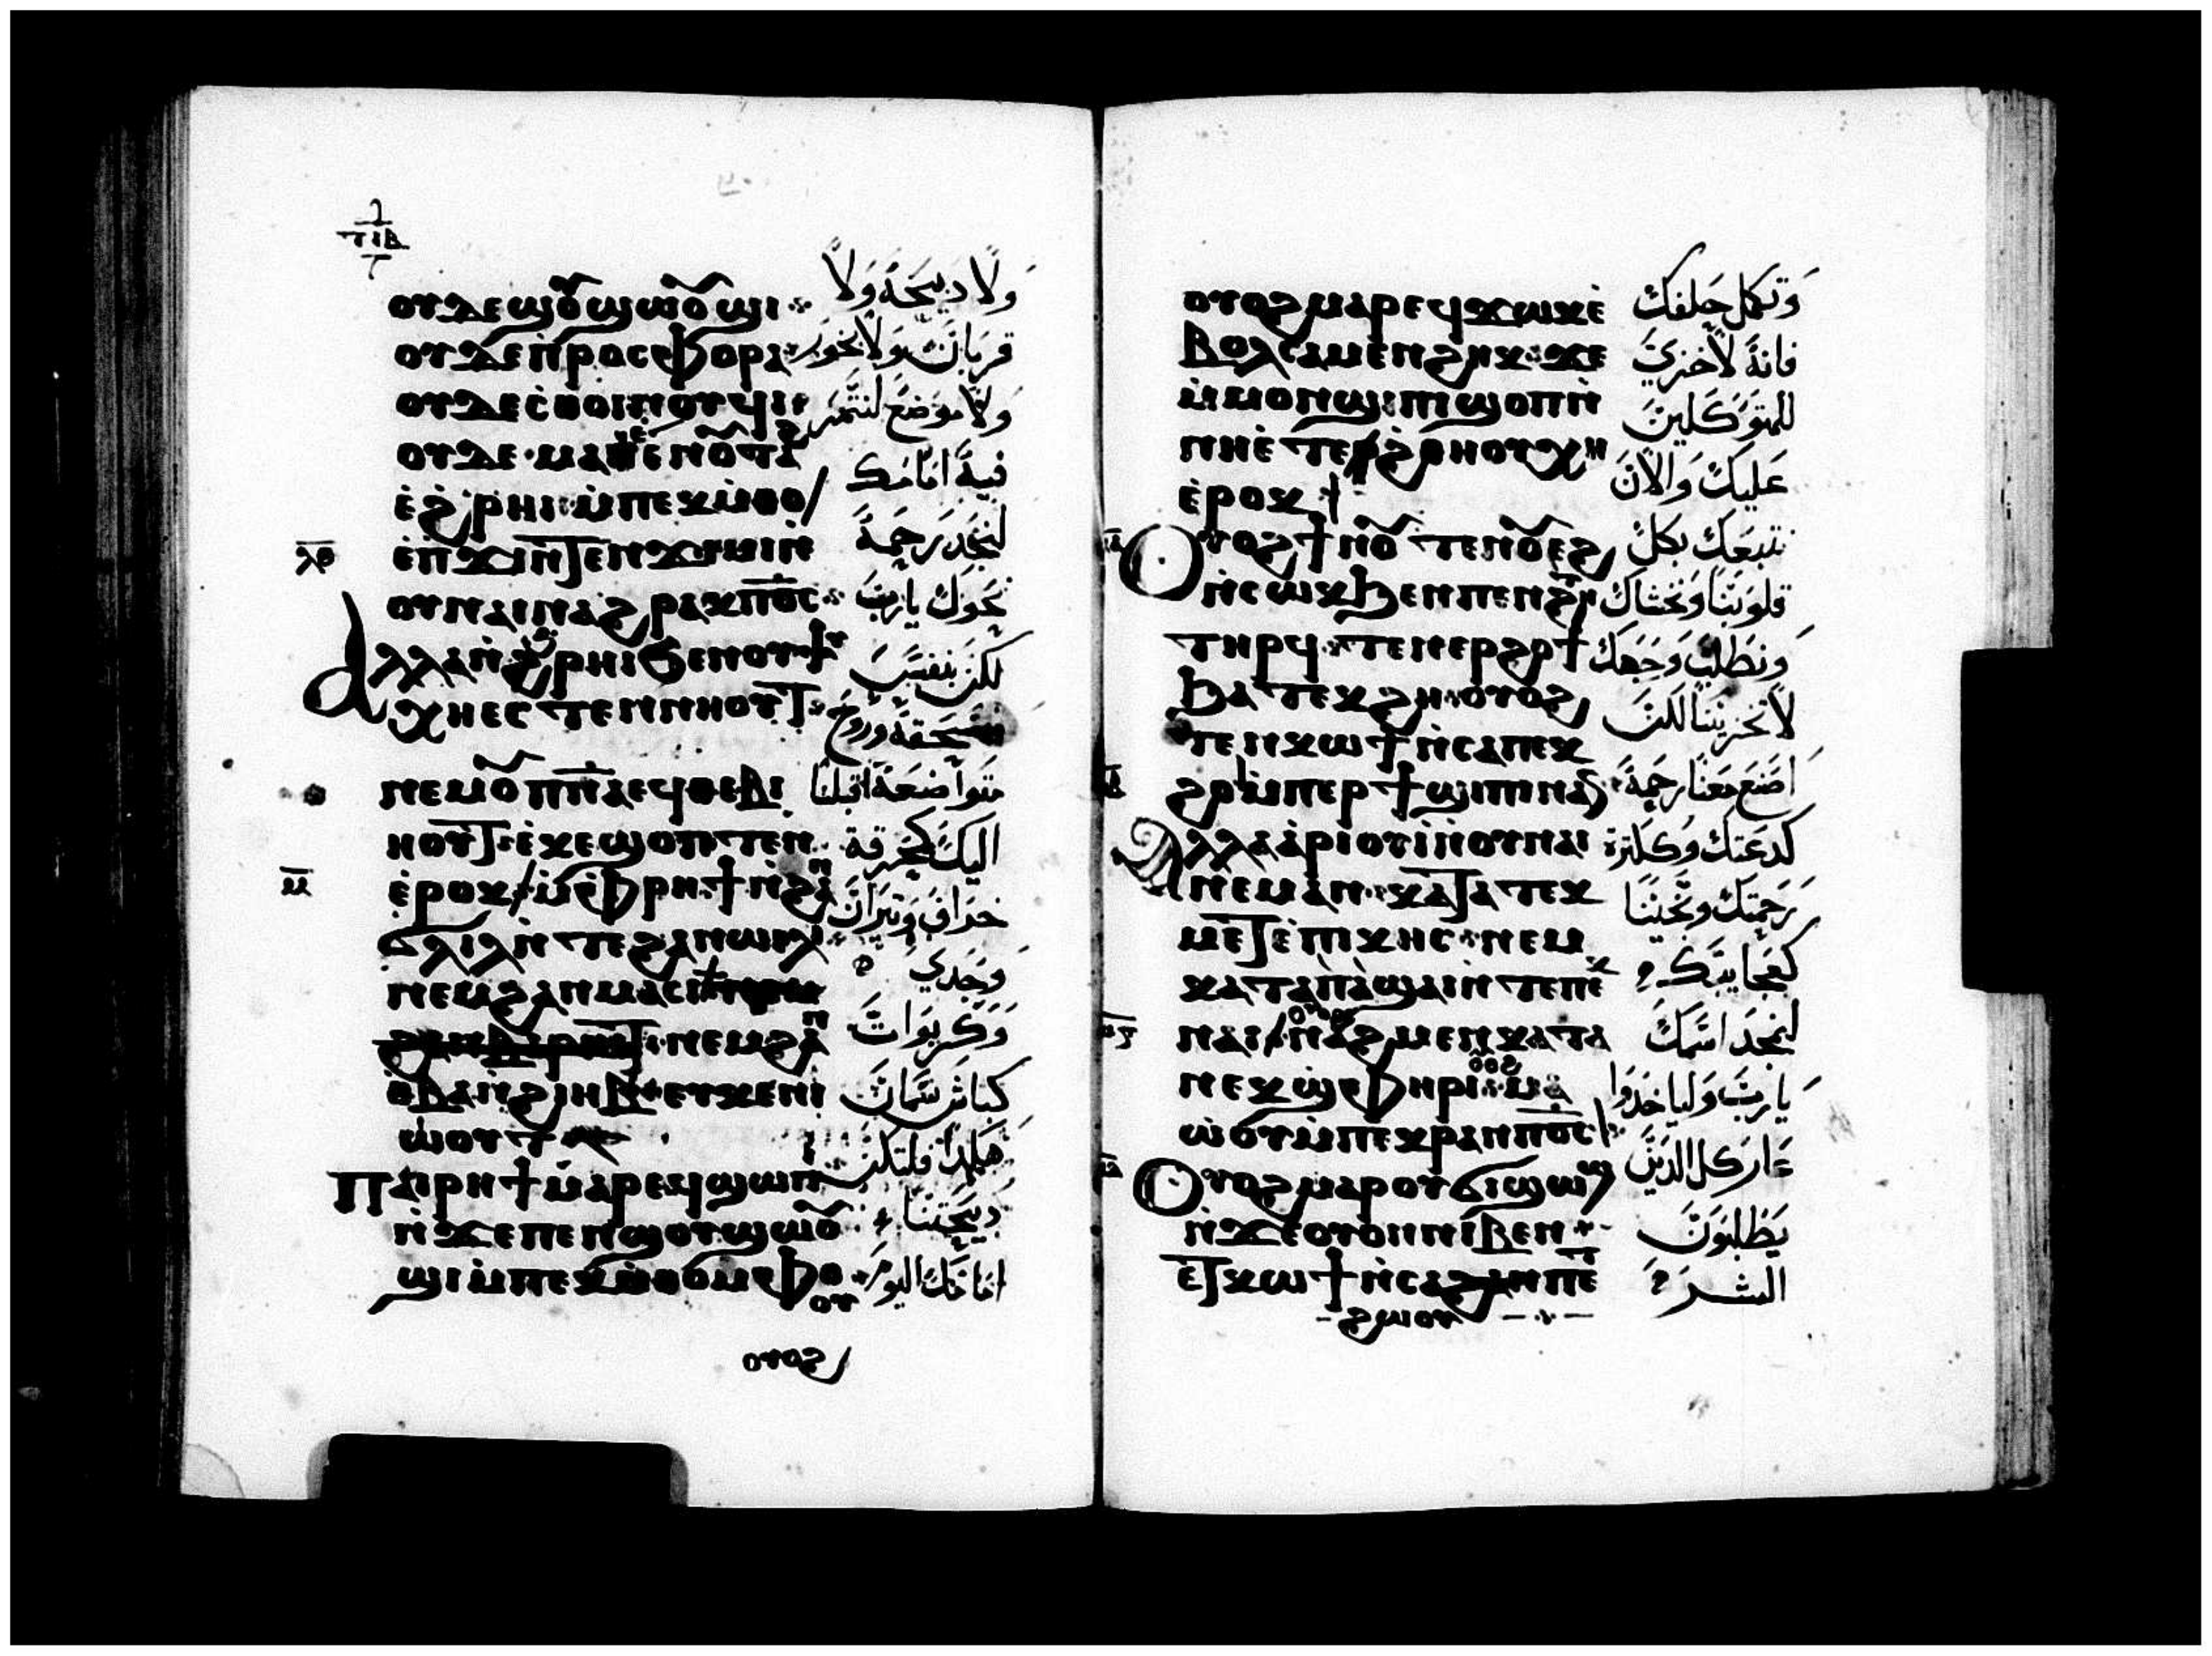 ⲧⲓⲃ
ⲟⲩⲇⲉ ϣⲟ̅ϣⲱⲟ̅ϣⲓ
ⲟⲩⲇⲉ ⲡ̀ⲣⲟⲥⲫⲟⲣⲁ
ⲟⲩⲇⲉ ⲥ̀ⲑⲟⲓⲛⲟⲩϥⲓ
ⲟⲩⲇⲉ ⲙⲁ
ⲉ̀ϩ̀ⲣⲏⲓ ⲙ̀ⲡⲉⲕⲙ̀ⲑⲟ
ⲉ̀ⲡϫⲓⲛⲧⲉⲛϫⲓⲙⲓⲛ̀
ⲟⲩⲛⲁⲓ ⲛⲁϩⲣⲁⲕ ⲡⲟ̅ⲥ̅
ⲁⲗⲗⲁ ⲛ̀ϩ̀ⲣⲏⲓ ϧⲉⲛ ⲟⲩⲯⲩ
ⲭⲏ ⲉⲥⲧⲉⲛⲛⲏⲟⲩⲧ
ⲛⲉⲙ ⲟ̅ⲡⲛ̅ⲁ̅ ⲉϥⲑⲉⲃⲓ
ⲏⲟⲩⲧ ⲉ̀ⲕⲉϣⲟⲡⲧⲉⲛ
ⲉ̀ⲣⲟⲕ ⲙ̀ⲫⲣⲏϯ ⲛ̀ϩⲁⲛ
ϭⲗⲓⲗ ⲛ̀ⲧⲉ ϩⲁⲛⲱⲓⲗⲓ
ⲛⲉⲙ ϩⲁⲛⲙⲁⲥⲓ
ⲛⲉⲙ ϩⲁⲛ
ⲑ̀ⲃⲁ ⲛ̀ϩⲓⲏⲃ ⲉⲩⲕⲉⲛⲓ
ⲱ̀ⲟⲩⲧ
ⲡⲁⲓⲣⲏϯ ⲙⲁⲣⲉϥϣⲱⲡⲓ
ⲛ̀ϫⲉ ⲡⲉⲛϣⲟⲩϣⲱⲟ̅
ϣⲓ ⲙ̀ⲡⲉⲕⲙ̀ⲑⲟ ⲙ̀ⲫⲟ
ⲟⲩ
ⲟⲩⲟϩ
ولا دبيحة ولا
قربان ولا بخور
ولا موضع لنتمر
فية امامك
لنجد رحمة
نحوك يارب
لكن بنفس
منسحقة وروح
متواضعة اقبلنا
اليك كمحرقة
خراف وتيران
وجدي
وكربوات
كباش سمان
هكدا فلتكن
دبيحتنا
امامك اليوم
ⲟⲩⲟϩ ⲙⲁⲣⲉϥϫⲱⲕ ⲉ̀
ⲃⲟⲗ ⲥⲁⲙⲉⲛϩⲏⲕ ϫⲉ
ⲙ̀ⲙⲟⲛ ϣⲓⲡⲓ ϣⲟⲡ ⲛ̀
ⲛⲏⲉ̀ⲧⲉⲣϩⲑⲏⲟⲩ ⲭⲏ
ⲉ̀ⲣⲟⲕ
ⲟⲩⲟϩ ϯⲛⲟ̅ ⲧⲉⲛⲟ̅ⲉϩ
ⲛ̀ⲥⲱⲕ ϧⲉⲛ ⲡⲉⲛϩⲏⲧ
ⲧⲏⲣϥ ⲧⲉⲛⲉⲣϩⲟϯ
ϧⲁⲧⲉⲕϩⲏ ⲟⲩⲟϩ
ⲧⲉⲛⲕⲱϯ ⲛ̀ⲥⲁ ⲡⲉⲕ
ϩⲟ ⲙ̀ⲡⲉⲣϯϣⲓⲡⲓ ⲛⲁⲛ
ⲁⲗⲗⲁ ⲁ̀ⲣⲓⲟⲩⲓ̀ ⲛ̀ⲟⲩⲛⲁⲓ
ⲛⲉⲙⲁⲛ ⲕⲁⲧⲁ ⲧⲉⲕ
ⲙⲉⲧⲉ̀ⲡⲓⲕⲏⲥ ⲛⲉⲙ
ⲕⲁⲧⲁ ⲡ̀ⲁ̀ϣⲁⲓ ⲛ̀ⲧⲉ ⲡⲉⲕ
ⲛⲁⲓ ⲛⲁϩⲙⲉⲛ ⲕⲁⲧⲁ
ⲛⲉⲕϣ̀ⲫⲏⲣⲓ ⲙⲁ
ⲱ̀ⲟⲩ ⲙ̀ⲡⲉⲕⲣⲁⲛ ⲡⲟ̅ⲥ̅
ⲟⲩⲟϩ ⲙⲁⲣⲟⲩϭⲓϣⲓⲡⲓ
ⲛ̀ϫⲉ ⲟⲩⲟⲛ ⲛⲓⲃⲉⲛ
ⲉⲧⲕⲱϯ ⲛ̀ⲥⲁ ϩⲁⲛⲡⲉⲧ
ϩⲱⲟⲩ
وتكمل خلفك
فانة لا خزي
للمتوكلين
عليك والان
نتبعك بكل
قلوبنا ونخشاك
ونطلب وجهك
لا تخزينا لكن
اصنع معنا رحمة
كدعتك وكثرة
رحمتك ونجينا
كعجايبك
لنمجد اسمك
يارب وليا خدوا
عار كل الدين
يطلبون
الشر